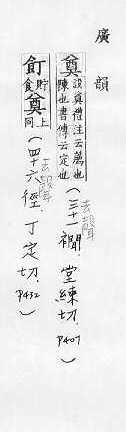 廣韻
奠設奠禮注云薦也陳也書傳云定也(去聲三十一襉.堂練切.P407)
飣貯食奠上同(去聲四十六徑.丁定切.P432)